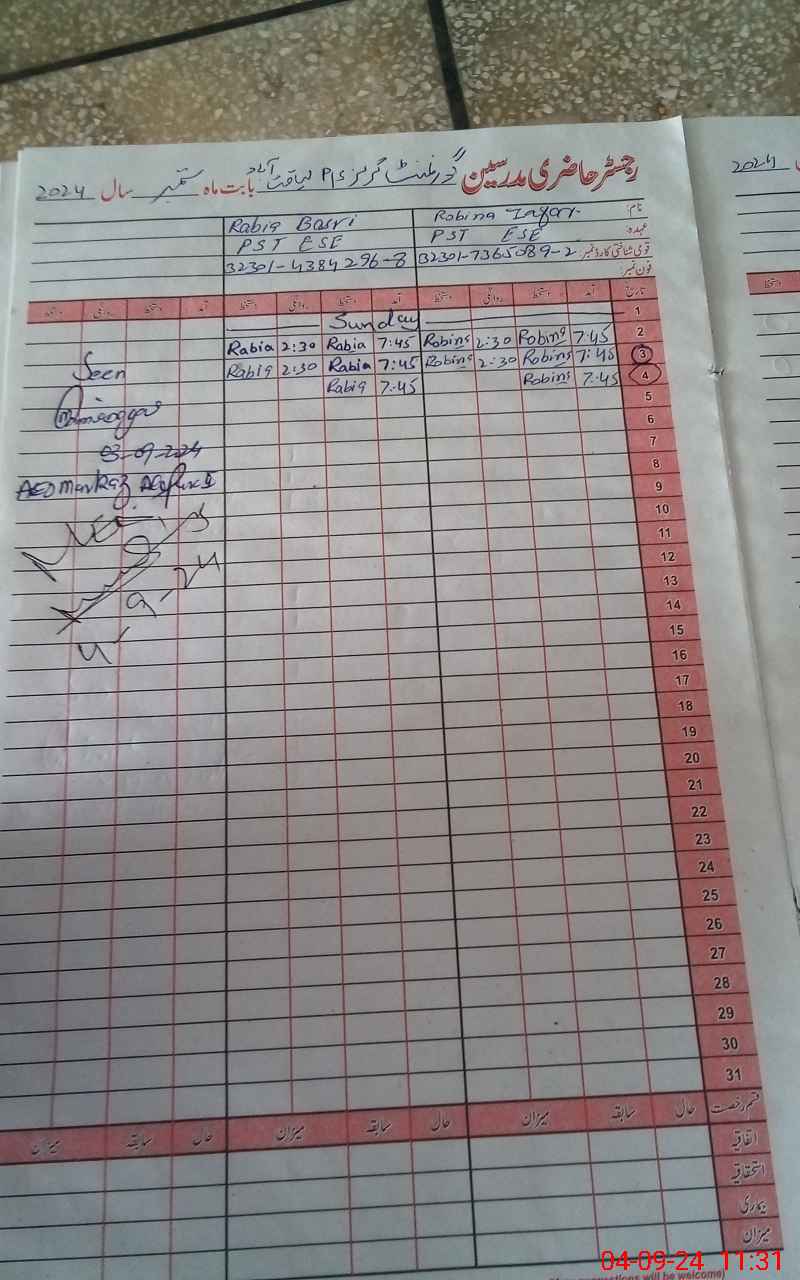 رجسٹر حاضری مدرسین گورنمنٹ گرلز P/S لیاقت آباد بابت ماہ ستمبر سال 2024
2024
نام: Robina Rabia Basri
عہدہ: PST ESE PST ESE
قومی شناختی کارڈ نمبر: 32301-7365089-2 32301-4384296-8
فون نمبر:
تاریخ آمد دستخط روانگی دستخط آمد دستخط روانگی دستخط آمد دستخط روانگی دستخط
دستخط
1 Sunday
2 7:45 Robina 2:30 Robina 7:45 Rabia 2:30 Rabia
3 7:45 Robina 2:30 Robina 7:45 Rabia 2:30 Rabia
4 7:45 Robina 7:45 Rabia
Seen
5
6
7
03-09-2024
8
AEO Markaz
9
10
11
12
13
4-9-24
14
15
16
17
18
19
20
21
22
23
24
25
26
27
28
29
30
31
قسم رخصت حال سابقہ میزان حال سابقہ میزان حال سابقہ میزان
اتفاقیہ
استحقاقیہ
بیماری
میزان
will be welcome)
04-09-24 11:31